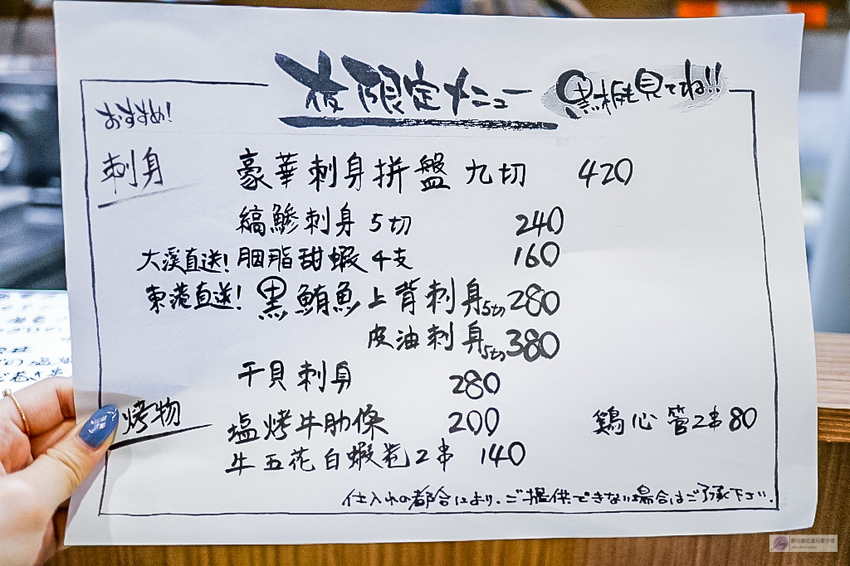 夜限定メニュー 黒板も見てね!!
おすすめ!
刺身
豪華刺身拼盤 九切 420
縞鰺刺身 5切 240
大溪直送! 胭脂甜蝦 4支 160
東港直送! 黑鮪魚上背刺身 5切 280
皮油刺身 5切 380
干貝刺身 280
烤物
塩烤牛肋條 200 鶏心管2串80
牛五花白蝦卷2串 140
仕入れの都合により、ご提供できない場合はご了承下さい.